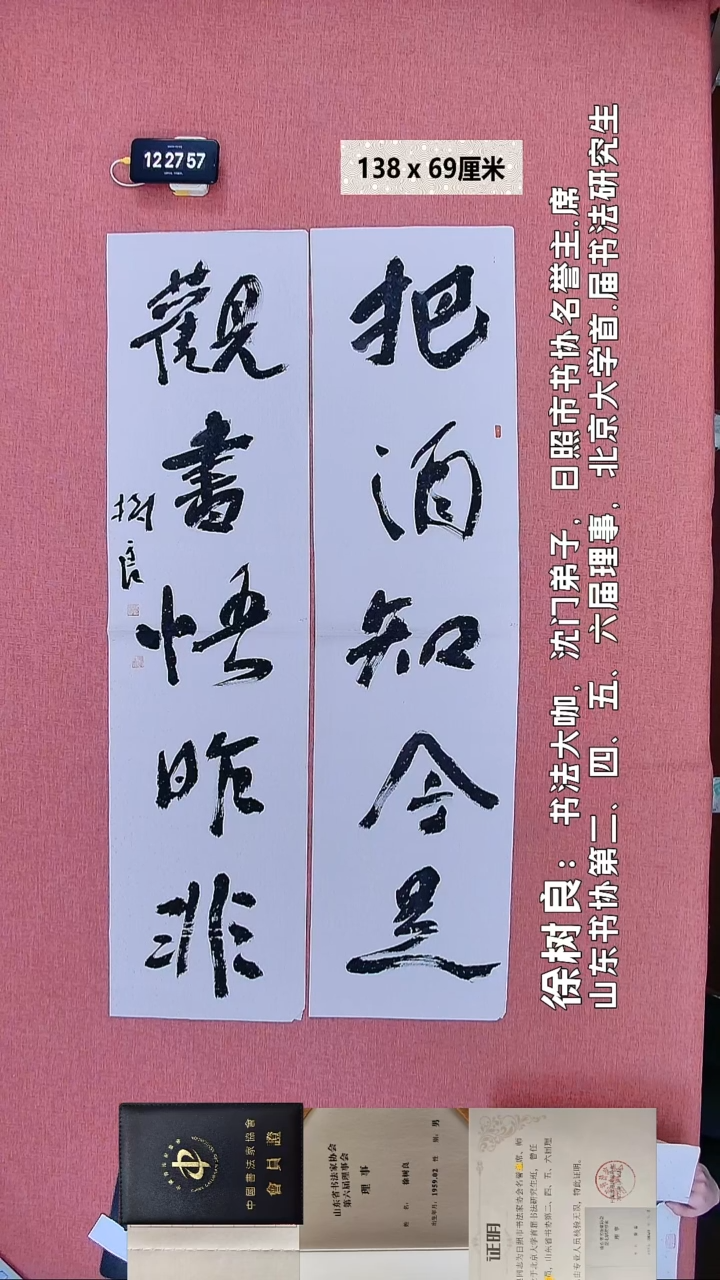 12 27 57
138 x 69厘米
把酒知今是
觀書悟昨非
樹良
徐树良：书法大咖，沈门弟子，日照市书协名誉主.席
山东书协第二、四、五、六届理事，北京大学首.届书法研究生
中國書法家協會
會員證
山东省书法家协会
第六届理事会
理 事
姓 名：徐树良
性 别：男
出生年月：1959.02
证明